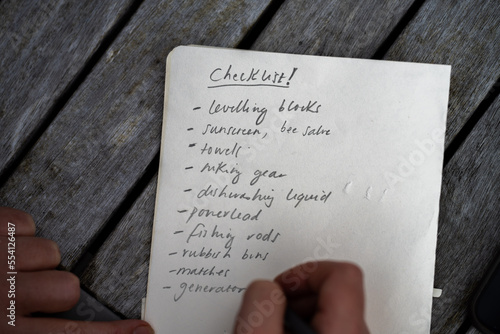 Checklist!
- levelling blocks
- sunscreen, bee salve
- towels
- hiking gear
- dishwashing liquid
- powerlead
- fishing rods
- rubbish bins
- matches
- generator
554126487
Adobe Stock